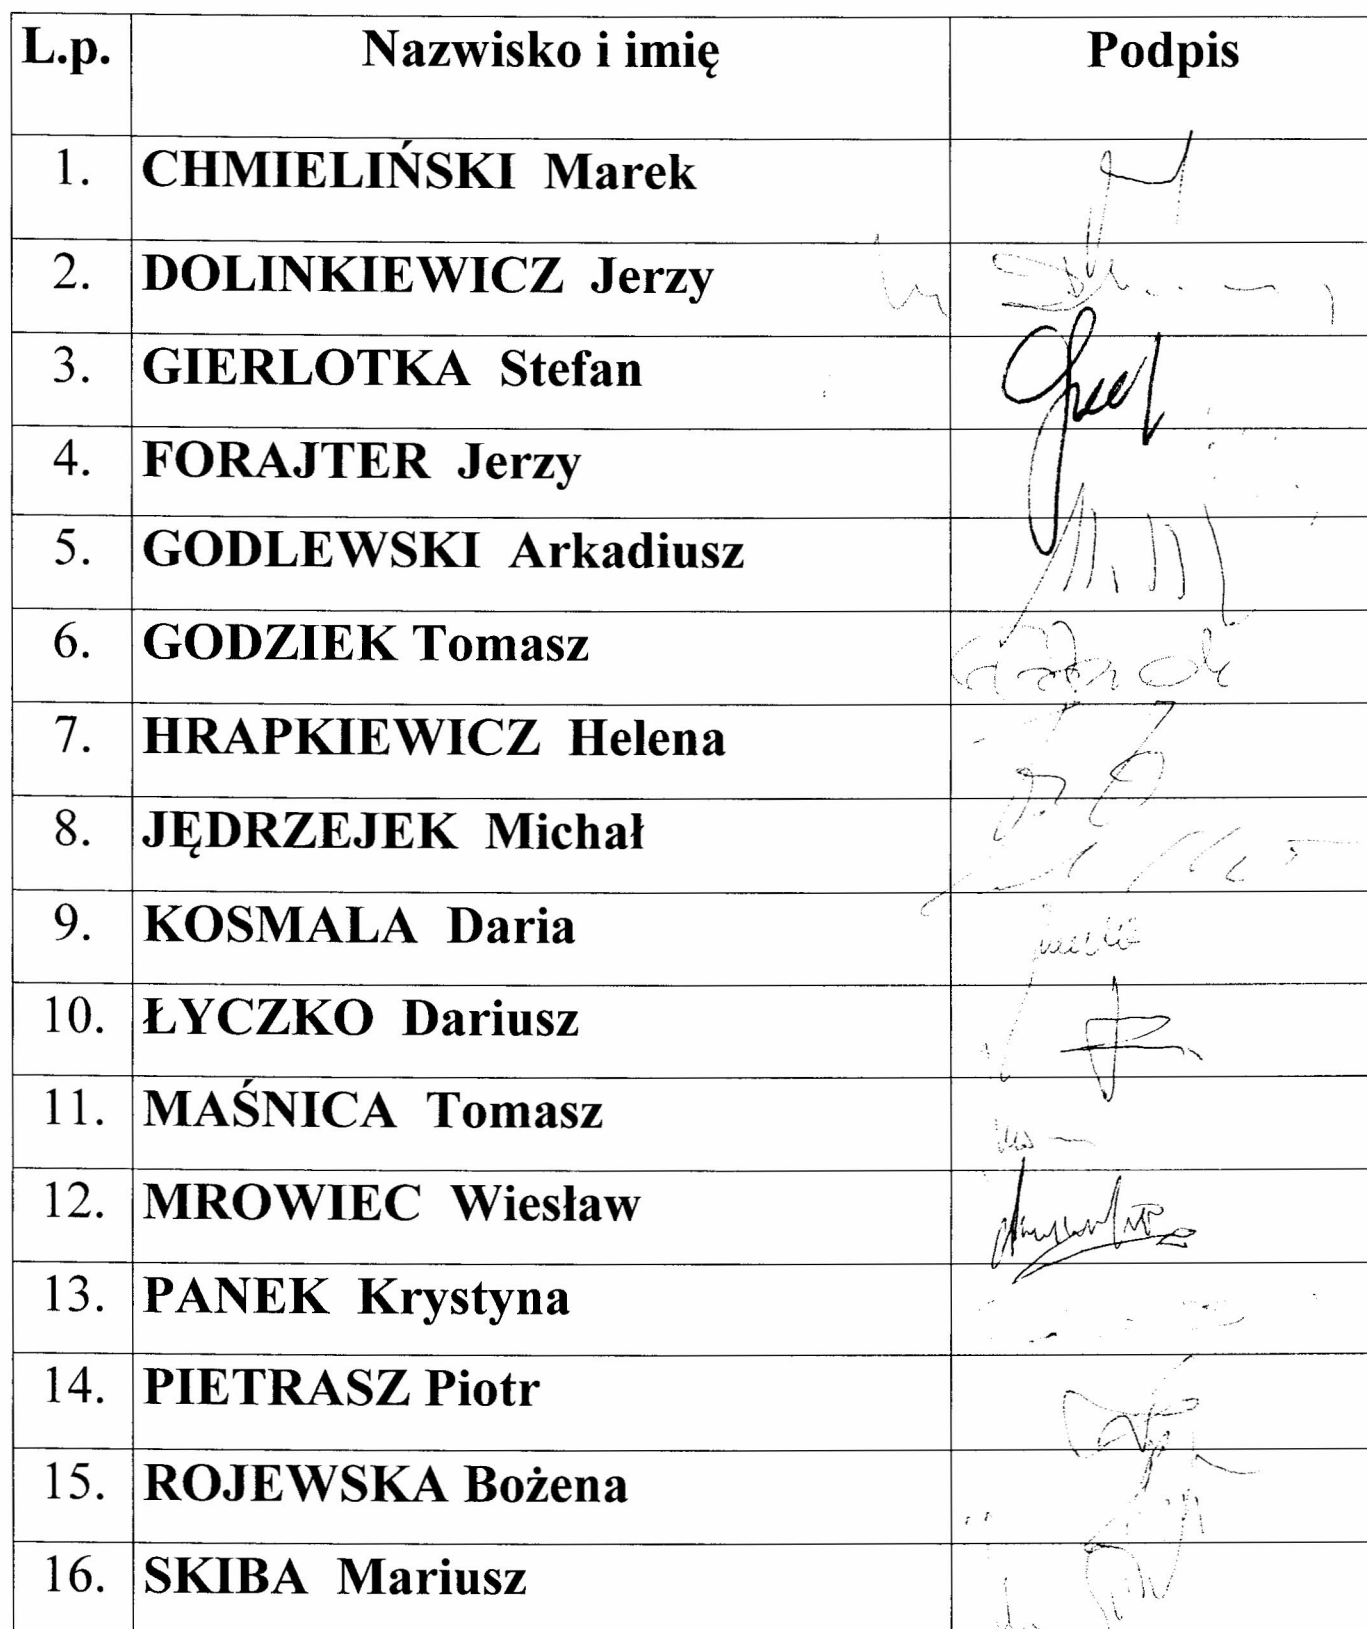 L.p. Nazwisko i imię Podpis
1. CHMIELIŃSKI Marek
2. DOLINKIEWICZ Jerzy
3. GIERLOTKA Stefan
4. FORAJTER Jerzy
5. GODLEWSKI Arkadiusz
6. GODZIEK Tomasz
7. HRAPKIEWICZ Helena
8. JĘDRZEJEK Michał
9. KOSMALA Daria
10. ŁYCZKO Dariusz
11. MAŚNICA Tomasz
12. MROWIEC Wiesław
13. PANEK Krystyna
14. PIETRASZ Piotr
15. ROJEWSKA Bożena
16. SKIBA Mariusz